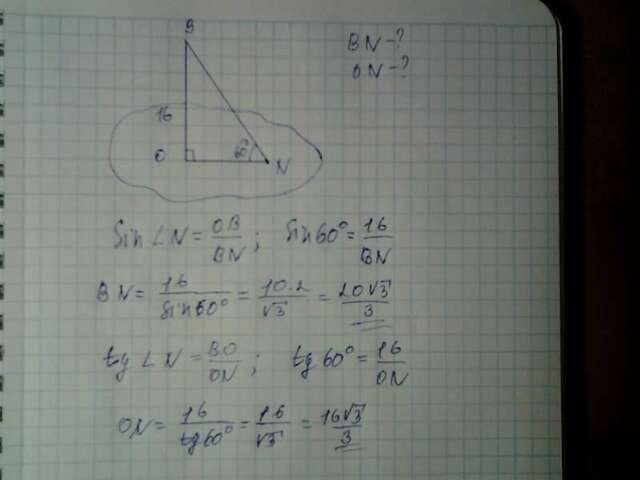 B
BN-?
ON-?
16
O 60° N
Sin∠N = OB/BN; Sin60° = 16/BN
BN = 16/Sin60° = 10·2/√3 = 20√3/3
tg∠N = BO/ON; tg60° = 16/ON
ON = 16/tg60° = 16/√3 = 16√3/3